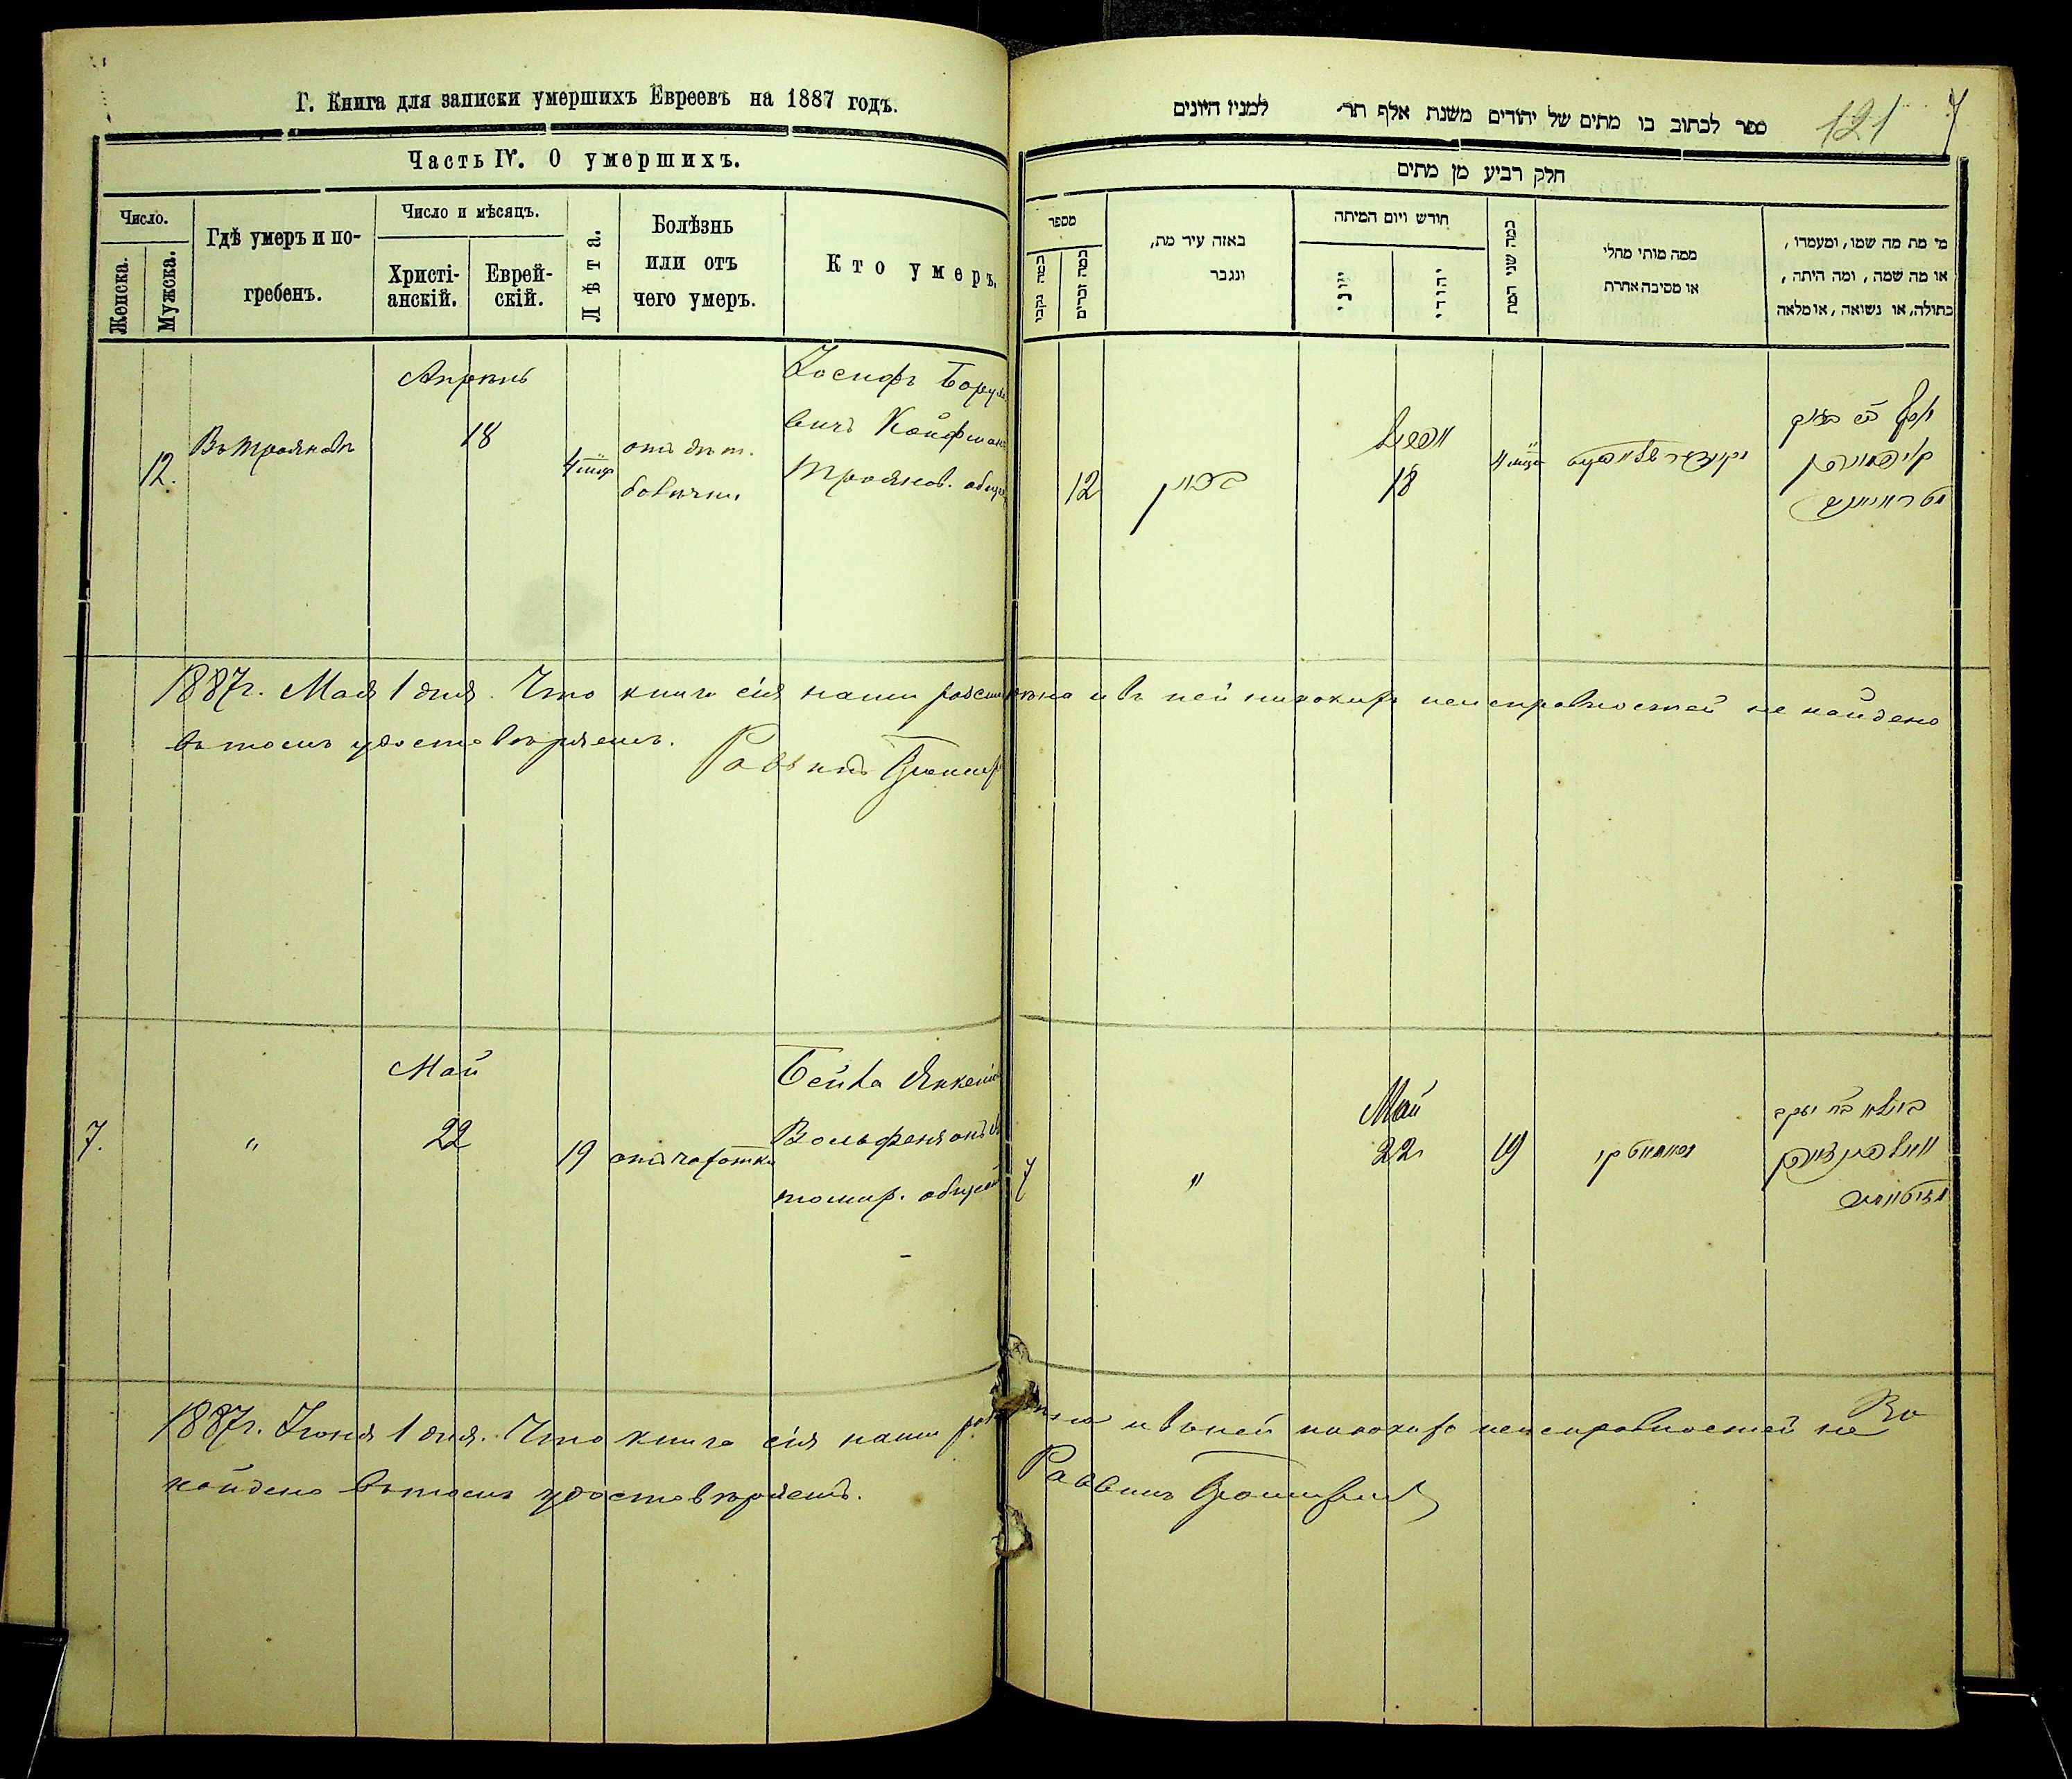 Г. Книга для записки умершихъ Евреевъ на 1887 годъ.
Часть IV. О умершихъ.
Число.
Женска.
Мужска.
Гдѣ умеръ и по-
гребенъ.
Число и мѣсяцъ.
Христі-
анскій.
Еврей-
скій.
Лѣта.
Болѣзнь
или отъ
чего умеръ.
Кто умеръ.
Апрель
12.
Въ Трояновѣ
18
4 мѣс
отъ дѣт.
болѣзни
Іосифъ Борух
вичъ Койфман
Троянов. общ
1887г. Мая 1 дня. Что книга сія нами и въ ней никакихъ неисправностей не найдено
въ томъ удостовѣряемъ.
Раввинъ
Май
7.
"
22
19
отъ чахотки
Бейла Янкел
Вольфензонъ
томир. общ
1887г. Іюня 1 дня. Что книга сія нами и въ ней никакихъ неисправностей не
найдено въ томъ удостовѣряемъ.
Раввинъ
ספר לכתוב בו מתים של יהודים משנת אלף תר׳ למנין היונים
121
7
חלק רביע מן מתים
מספר
כמה נקבי
כמה זכרים
באזה עיר מת,
ונגבר
חודש ויום המיתה
יווני
יהודי
כמה שני המת
ממה מותי מחלי
או מסיבה אחרת
מי מת מה שמו, ומעמדו,
או מה שמה, ומה היתה,
בתולה, או נשואה, או מלאה
12
18
4
יוסף
קויפמאן
7
"
Май
22
19
ביילא בת יעקב
וואלפענזאהן